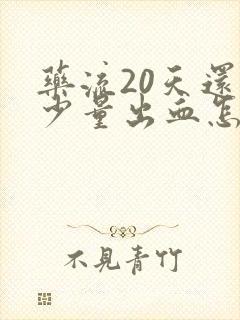 藥流20天還
少量出血怎
不見青竹